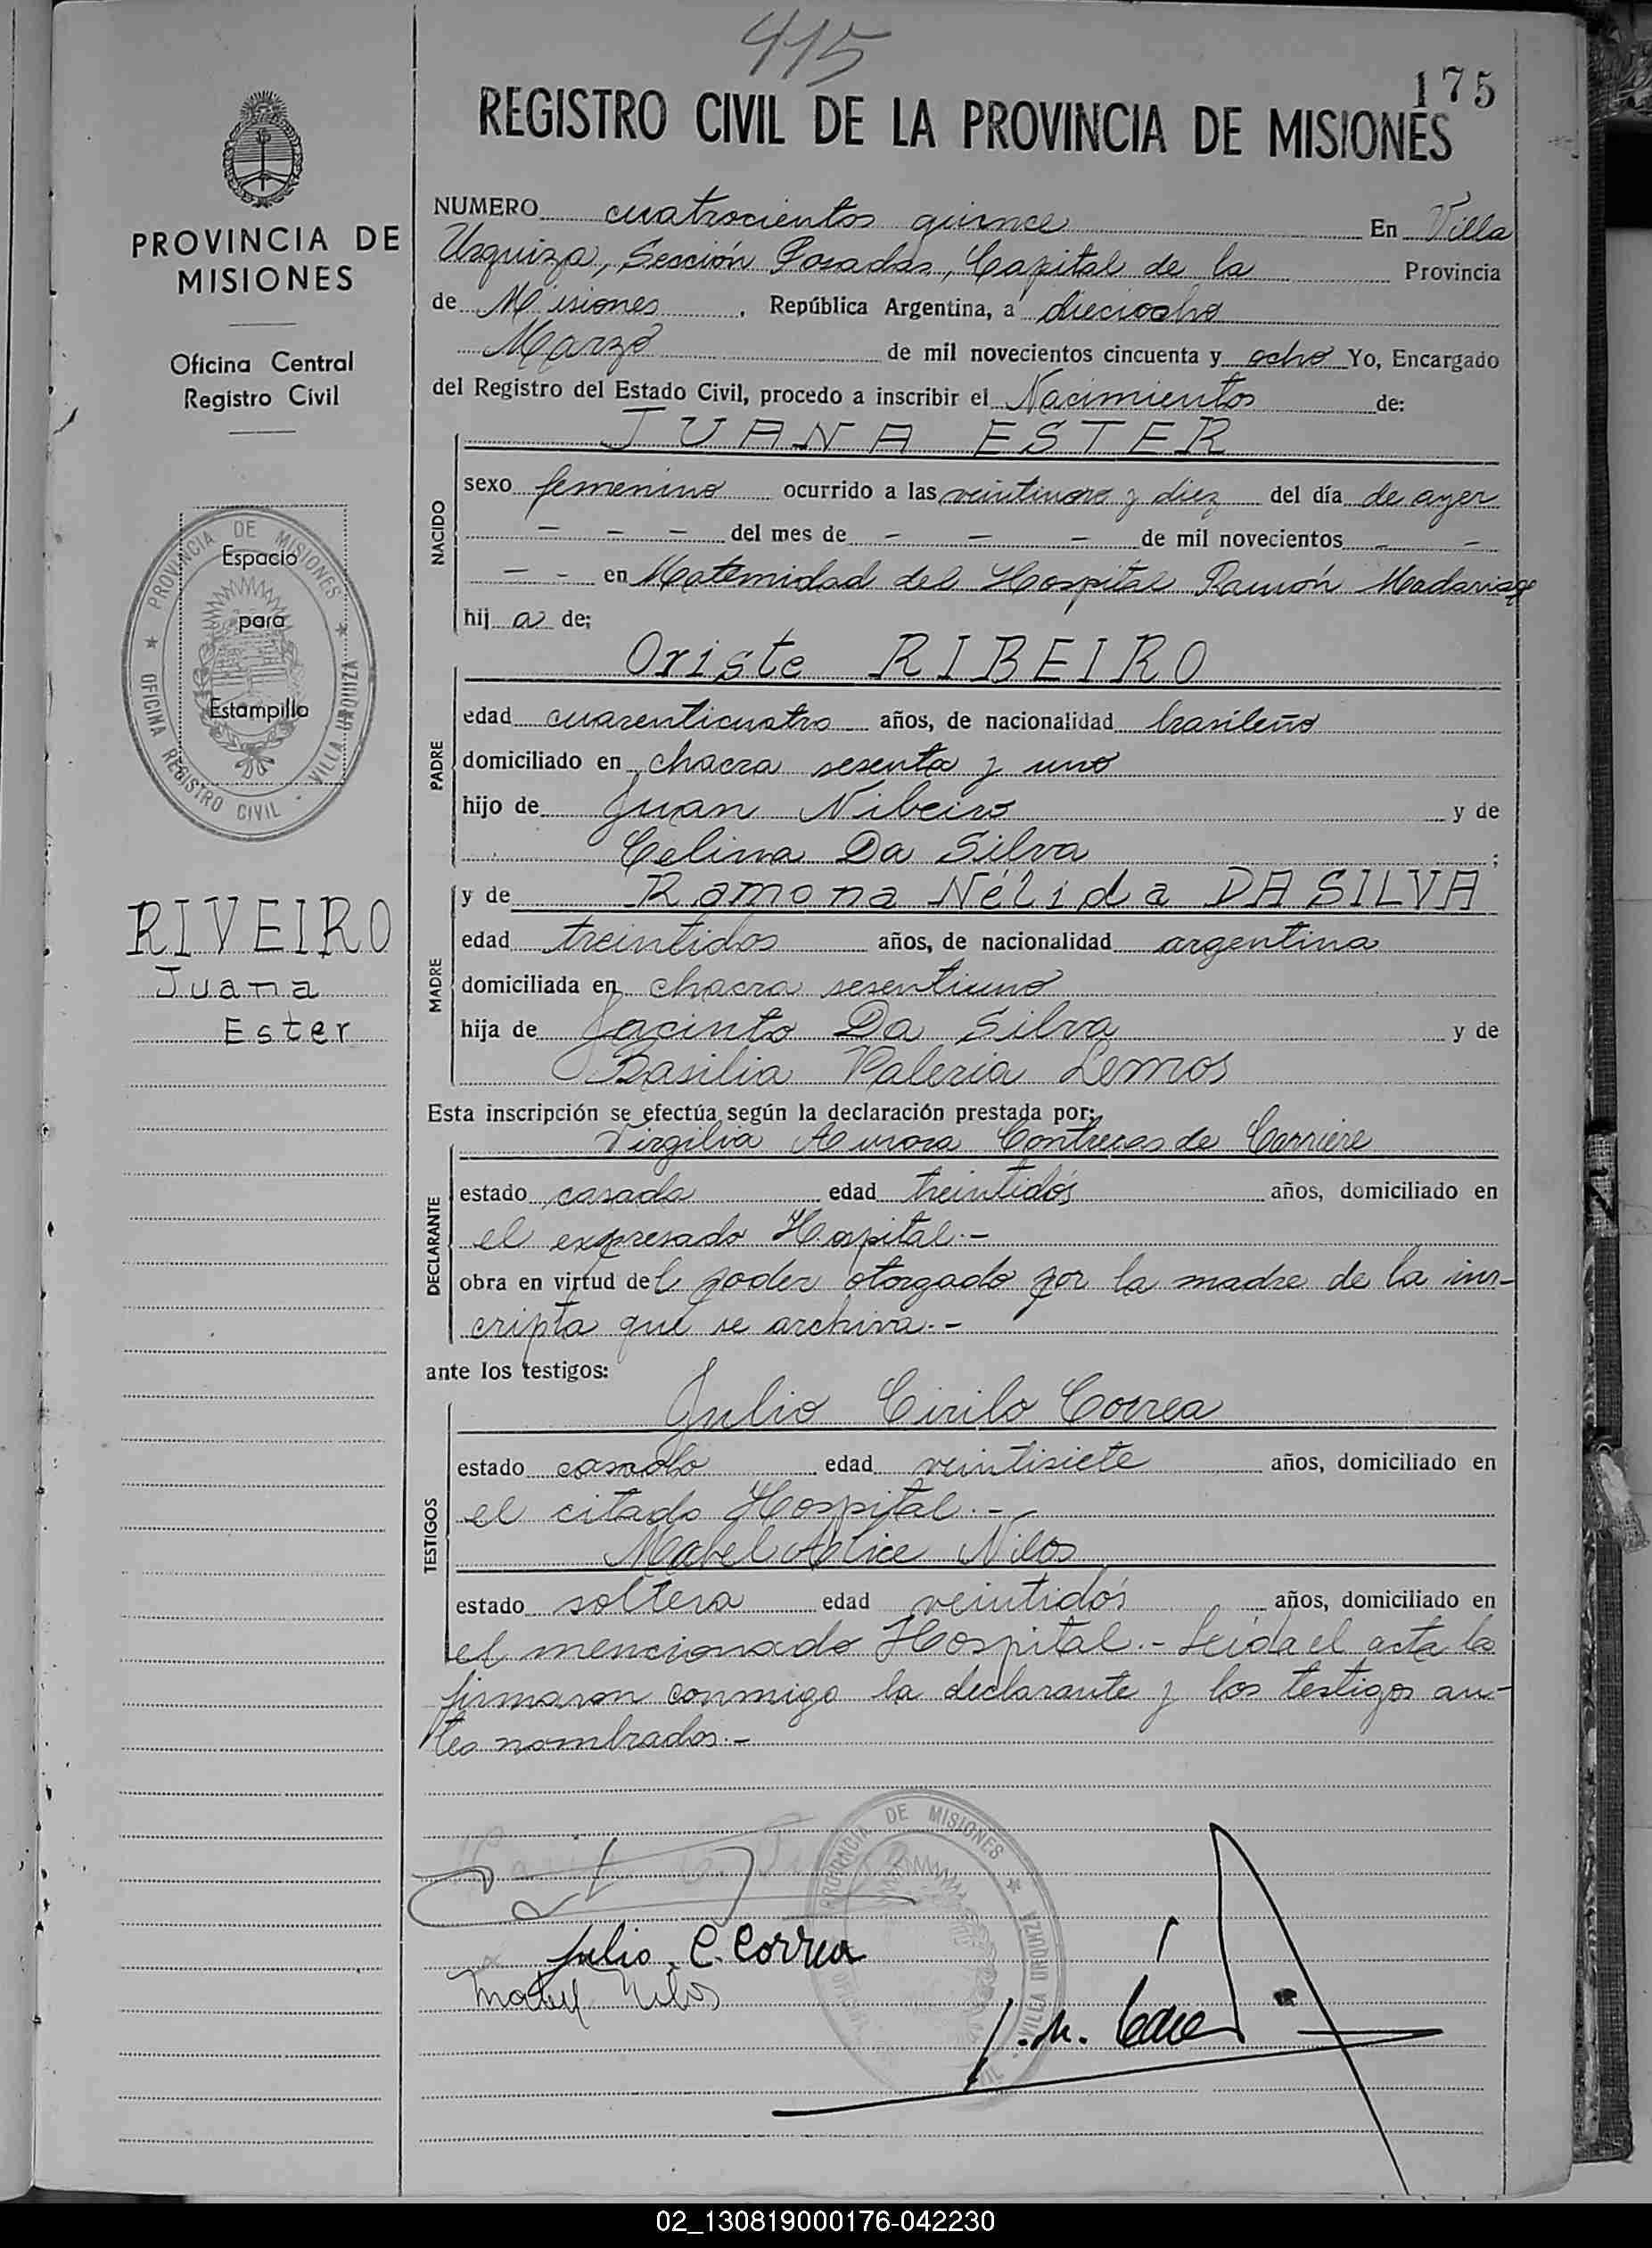 415
175
REGISTRO CIVIL DE LA PROVINCIA DE MISIONES
PROVINCIA DE
MISIONES
Oficina Central
Registro Civil
PROVINCIA DE MISIONES
OFICINA REGISTRO CIVIL - VILLA URQUIZA
Espacio
para
Estampilla
RIVEIRO
Juana
Ester
NUMERO cuatrocientos quince En Villa
Urquiza, Sección Posadas, Capital de la Provincia
de Misiones. República Argentina, a dieciocho
Marzo de mil novecientos cincuenta y ocho Yo, Encargado
del Registro del Estado Civil, procedo a inscribir el Nacimientos de:
NACIDO
JUANA ESTER
sexo femenino ocurrido a las y diez del día de ayer
- - - del mes de - - - de mil novecientos - -
- - en Maternidad del Hospital Ramón Madariaga
hij a de:
PADRE
Oriste RIBEIRO
edad cuarenticuatro años, de nacionalidad brasileño
domiciliado en chacra sesenta y uno
hijo de Juan Ribeiro y de
Celina Da Silva ;
MADRE
y de Ramona Nélida DA SILVA
edad treintidos años, de nacionalidad argentina
domiciliada en chacra sesentiuno
hija de Jacinto Da Silva y de
Basilia Valeria Lemos
Esta inscripción se efectúa según la declaración prestada por:
DECLARANTE
Virgilia Aurora Contreras de Carriere
estado casada edad treintidós años, domiciliado en
el expresado Hospital.-
obra en virtud del poder otorgado por la madre de la ins-
cripta que se archiva.-
ante los testigos:
TESTIGOS
Julio Cirilo Correa
estado casado edad veintisiete años, domiciliado en
el citado Hospital.-
Mabel Alice Nilos
estado soltera edad veintidós años, domiciliado en
el mencionado Hospital.- Leída el acta la
firmaron conmigo la declarante y los testigos an-
tes nombrados.-
PROVINCIA DE MISIONES
VILLA URQUIZA
Julio C. Correa
Mabel Nilos
02_130819000176-042230